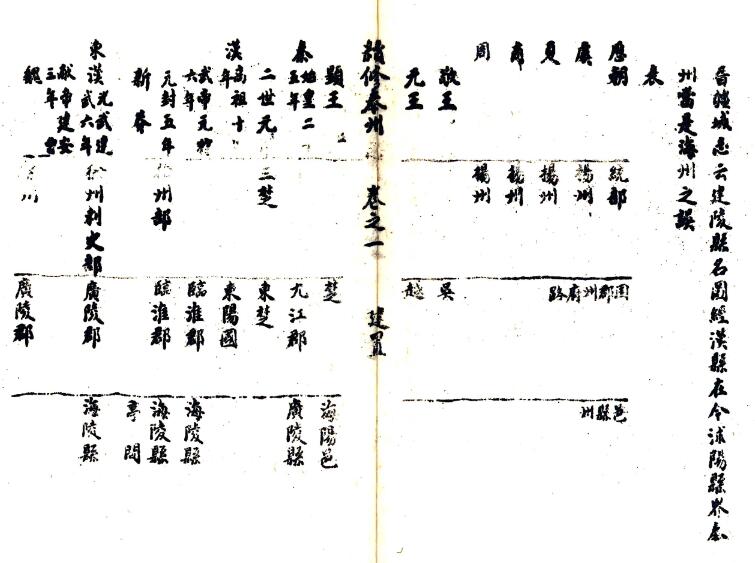 晉疆域志云建陵縣名圖經漢縣在今沭陽縣界泰
州當是海州之誤
表
歷朝 統部 國郡州府路 邑縣州
虞 揚州
夏 揚州
商 揚州
周 揚州
敬王 吳
元王 越
續修泰州志 卷之一 建置
顯王 楚 海陽邑
秦始皇二十五年 九江郡 廣陵縣
二世元 三楚 東楚
漢高祖十年 東陽國
武帝元狩六年 臨淮郡 海陵縣
元封五年 徐州部 臨淮郡 海陵縣
新莽 亭間
東漢光武建武六年 徐州刺史部 廣陵郡 海陵縣
獻帝建安三年
魏 徐州 廣陵郡